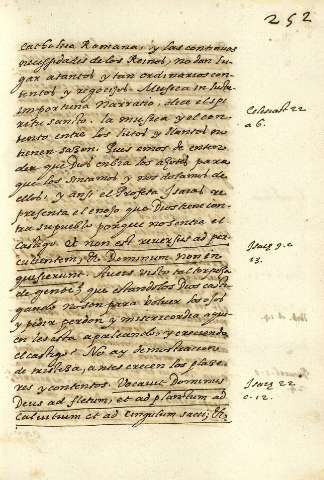 252
catholica Romana, y las continuas
necessidades de los Reinos, no dan lu-
gar a tantos y tan ordinarios con-
tentos y regocijos. Musica in luctu
importuna narratio, dice el spi-
ritu sancto. la musica y el con-
tento entre los lutos y llantos no
tienen sazon. Pues emos de enten-
der que Dios enbia los açotes para
que los sintamos y nos dolamos de
ellos, y ansi el Profeta Isaias re-
presenta el enojo que Dios tiene con-
tra su pueblo porque no sentia el
castigo. et non est reversus ad per-
cutientem, et Dominum non in-
quisierunt. Aveis visto tal
de gente? que estandolos Dios casti-
gando no son para bolver los ojos
y pedir perdon y misericordia a qui-
en les esta apaleando, y creciendo
el castigo? No ay demostracion
de tristeza, antes crecen los plaze-
res y contentos. Vocavit Dominus
Deus ad fletum, et ad planctum ad
calvitium et ad cingulum sacci, &c.
Eclesiast. 22
a 6.
Isaiæ 9. c.
13.
Isaiæ 22
c. 12.